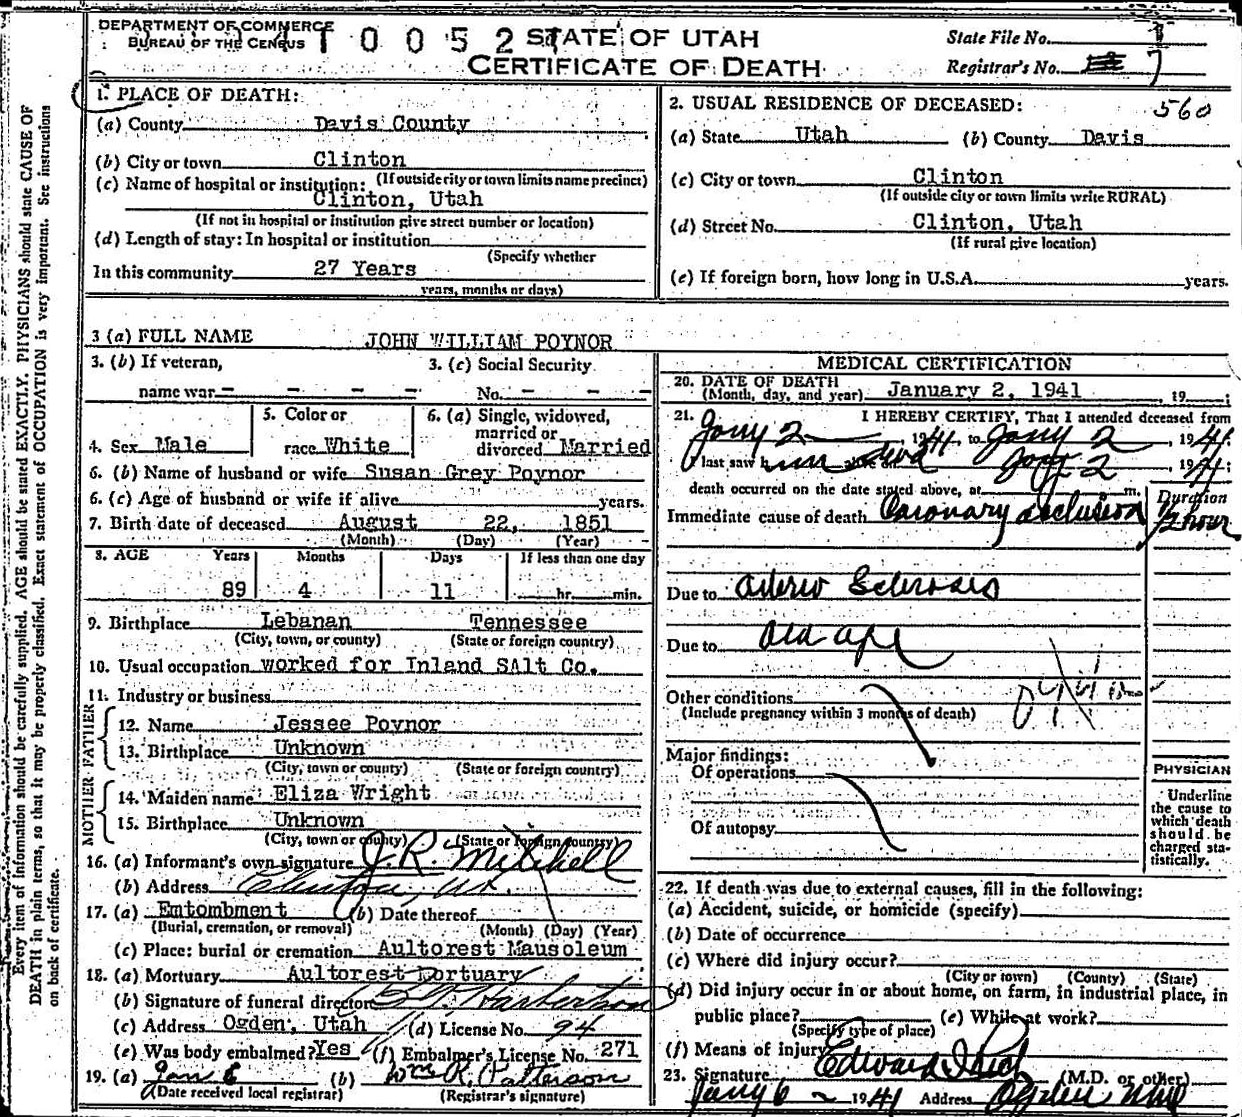 DEPARTMENT OF COMMERCE
BUREAU OF THE CENSUS
1 0 0 5 2
STATE OF UTAH
CERTIFICATE OF DEATH
State File No.
Registrar's No. 7
1. PLACE OF DEATH:
(a) County Davis County
(b) City or town Clinton
(If outside city or town limits name precinct)
(c) Name of hospital or institution:
Clinton, Utah
(If not in hospital or institution give street number or location)
(d) Length of stay: In hospital or institution
(Specify whether
In this community 27 Years
years, months or days)
2. USUAL RESIDENCE OF DECEASED: 560
(a) State Utah (b) County Davis
(c) City or town Clinton
(If outside city or town limits write RURAL)
(d) Street No. Clinton, Utah
(If rural give location)
(e) If foreign born, how long in U.S.A. years.
3 (a) FULL NAME JOHN WILLIAM POYNOR
3. (b) If veteran,
name war - - - - -
3. (c) Social Security
No. - - -
4. Sex Male
5. Color or
race White
6. (a) Single, widowed,
married or
divorced Married
6. (b) Name of husband or wife Susan Grey Poynor
6. (c) Age of husband or wife if alive years.
7. Birth date of deceased August 22, 1851
(Month) (Day) (Year)
8. AGE Years Months Days If less than one day
89 4 11 hr. min.
9. Birthplace Lebanan Tennessee
(City, town, or county) (State or foreign country)
10. Usual occupation worked for Inland SAlt Co.
11. Industry or business
FATHER
12. Name Jessee Poynor
13. Birthplace Unknown
(City, town or county) (State or foreign country)
MOTHER
14. Maiden name Eliza Wright
15. Birthplace Unknown
(City, town or county) (State or foreign country)
16. (a) Informant's own signature J. R. Mitchell
(b) Address Clinton, Ut.
17. (a) Emtombment (b) Date thereof
(Burial, cremation, or removal) (Month) (Day) (Year)
(c) Place: burial or cremation Aultorest Mausoleum
18. (a) Mortuary Aultorest Mortuary
(b) Signature of funeral director
(c) Address Ogden, Utah (d) License No. 94
(e) Was body embalmed? Yes (f) Embalmer's License No. 271
19. (a) Jan 6 (b) Wm R. Patterson
(Date received local registrar) (Registrar's signature)
MEDICAL CERTIFICATION
20. DATE OF DEATH
(Month, day, and year) January 2, 1941 19 ;
21. I HEREBY CERTIFY, That I attended deceased from
Jany 2 , 1941, to Jany 2 , 1941
I last saw him dead Jany 2 , 1941;
death occurred on the date stated above, at m.
Duration
Immediate cause of death Coronary occlusion 1/2 hour
Due to Arterio Sclerosis
Due to Old age
Other conditions
(Include pregnancy within 3 months of death)
Major findings:
Of operations
Of autopsy
PHYSICIAN
Underline
the cause to
which death
should be
charged sta-
tistically.
22. If death was due to external causes, fill in the following:
(a) Accident, suicide, or homicide (specify)
(b) Date of occurrence
(c) Where did injury occur?
(City or town) (County) (State)
(d) Did injury occur in or about home, on farm, in industrial place, in
public place? (e) While at work?
(Specify type of place)
(f) Means of injury
23. Signature Edward I Rich (M.D. or other)
Jany 6 1941 Address Ogden Utah
Every item of information should be carefully supplied. AGE should be stated EXACTLY. PHYSICIANS should state CAUSE OF
DEATH in plain terms, so that it may be properly classified. Exact statement of OCCUPATION is very important. See instructions
on back of certificate.